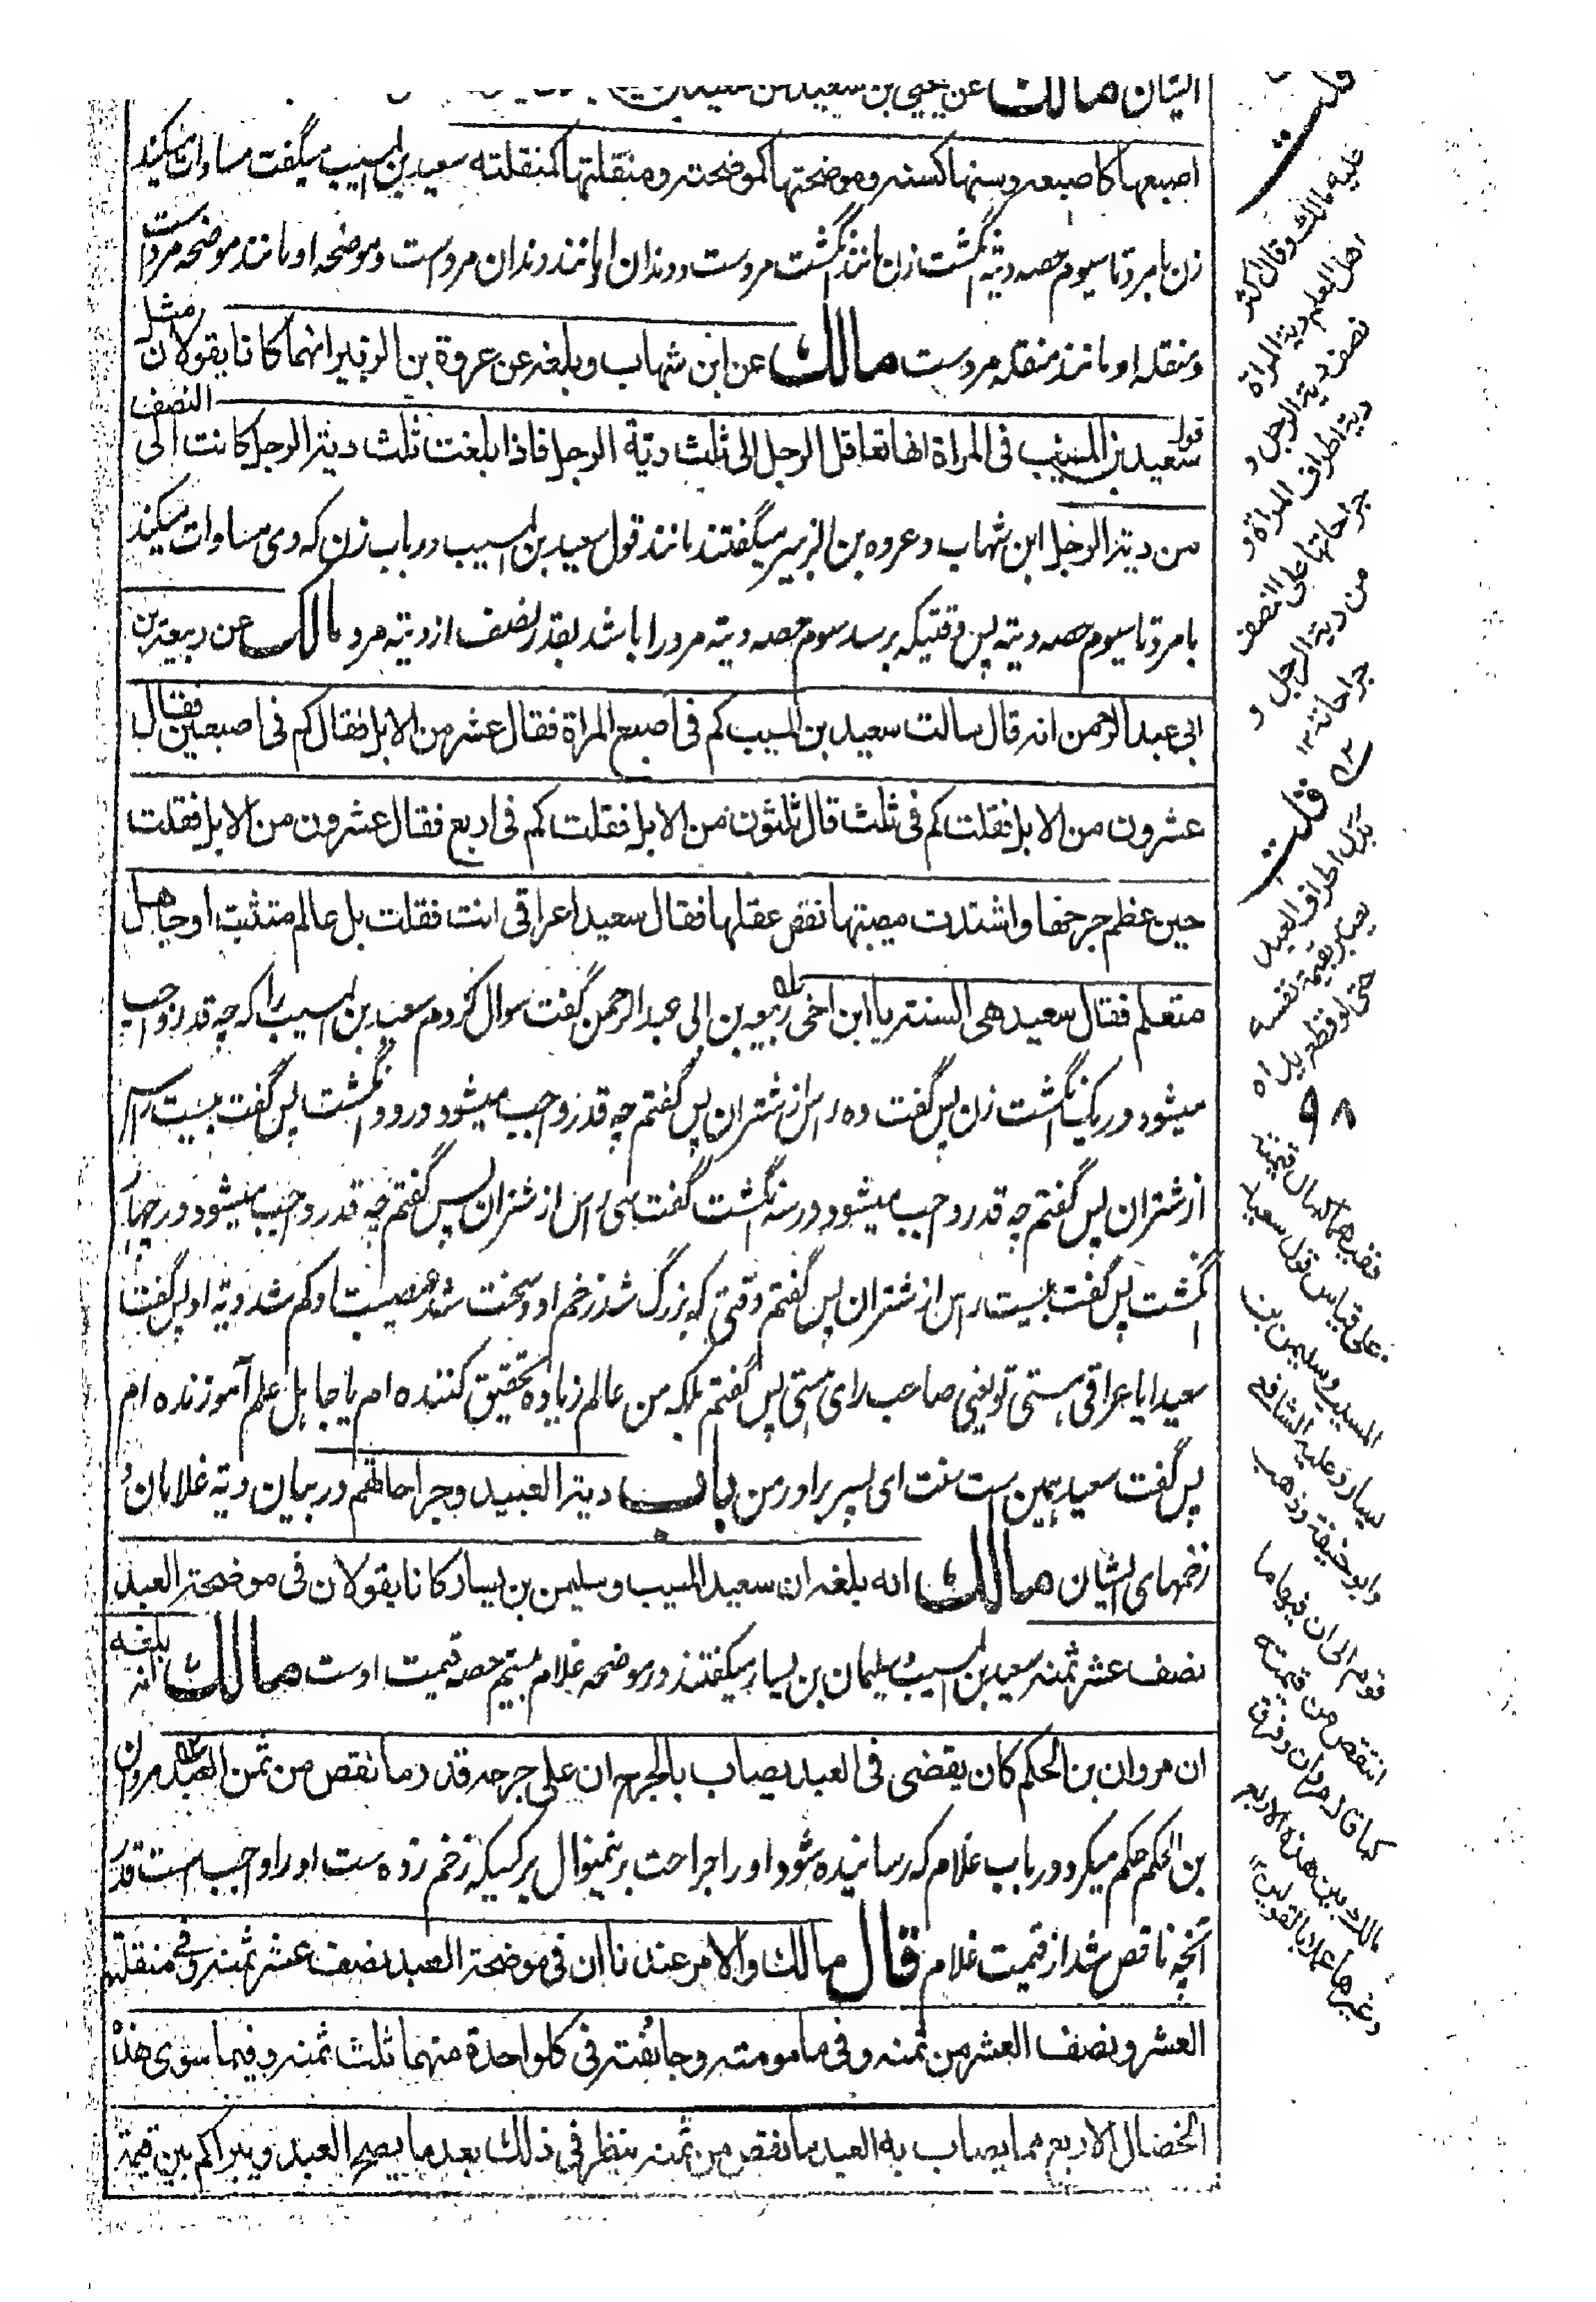 ایشان مالك عن يحيى بن سعيد عن سعيد بن
اصبعها كاصبعه وسنها كسنه وموضحتها كموضحته ومنقلتها كمنقلته سعید بن المسیب میگفت مساوات میکند
زن با مرد تا سیوم حصه دیته انگشت زن مانند انگشت مردست و دندان او مانند دندان مردست و موضحه او مانند موضحه مردست
و منقله او مانند منقله مردست مالك عن ابن شهاب وبلغه عن عروة بن الزبير انهما كانا يقولان مثل
قول سعيد بن المسيب فى المراة انها تعاقل الرجل الى ثلث دية الرجل فاذا بلغت ثلث دية الرجل كانت الى النصف
من دية الرجل ابن شهاب و عروه بن الزبیر میگفتند مانند قول سعید بن المسیب در باب زن که وی مساوات میکند
با مرد تا سیوم حصه دیته پس وقتیکه برسد سوم حصه دیته مرد را باشد بقدر نصف از دیته مرد مالك عن ربيعة بن
ابى عبد الرحمن انه قال سالت سعيد بن المسيب كم فى اصبع المراة فقال عشر من الابل فقال كم فى اصبعين فقال
عشرون من الابل فقلت كم فى ثلث قال ثلثون من الابل فقلت كم فى اربع فقال عشرون من الابل فقلت
حين عظم جرحها واشتدت مصيبتها نقص عقلها فقال سعيد اعراقى انت فقلت بل عالم متثبت او جاهل
متعلم فقال سعيد هى السنة يا ابن اخى ربیعه بن ابی عبد الرحمن گفت سوال کردم سعید بن المسیب را که چه قدر واجب
میشود در یک انگشت زن پس گفت ده راس از شتران پس گفتم چه قدر واجب میشود در دو انگشت پس گفت بیست راس
از شتران پس گفتم چه قدر واجب میشود در سه انگشت گفت سی راس از شتران پس گفتم چه قدر واجب میشود در چهار
انگشت پس گفت بیست راس از شتران پس گفتم وقتی که بزرگ شد زخم او و سخت شد مصیبت او کم شد دیته او پس گفت
سعید ایا عراقی هستی تو یعنی صاحب رای هستی پس گفتم بلکه من عالم زیاده تحقیق کننده ام یا جاهل علم آموزنده ام
پس گفت سعید همین است سنت ای پسر برادر من باب دية العبيد وجراحاتهم در بیان دیته غلامان و
زخمهای ایشان مالك انه بلغه ان سعيد المسيب وسليمن بن يسار كانا يقولان فى موضحة العبد
نصف عشر ثمنه سعید بن المسیب و سلیمان بن یسار میگفتند در موضحه غلام بیستم حصه قیمت اوست مالك انه بلغه
ان مروان بن الحكم كان يقضى فى العبد يصاب بالجرح ان على جرحه قدر ما نقص من ثمن العبد مروان
بن الحکم حکم میکرد در باب غلام که رسانیده شود او را جراحت برینمنوال بر کسیکه زخم زده ست او را واجب ست قدر
آنچه ناقص شد از قیمت غلام قال مالك والامر عندنا ان فى موضحة العبد نصف عشر ثمنه وفى منقلته
العشر ونصف العشر من ثمنه وفى مامومته وجائفته فى كل واحدة منهما ثلث ثمنه وفيما سوى هذه
الخصال الاربع مما يصاب به العبد ما نقص من ثمنه ينظر فى ذلك بعد ما يصح العبد ويبرا كم بين قيمة
قلت
عليه مالك وقال اكثر
اهل العلم دية المراة
نصف دية الرجل و
دية اطراف المراة و
جراحاتها على النصف
من دية الرجل و
جراحاته ١٢
قلت
بدل اطراف العبد
يعتبر بقيمة نفسه
حتى لو قطع يداه
ففيهما كمال قيمته
على قياس قول سعيد
المسيب وسليمن بن
يسار وعليه الشافعى
وابو حنيفة وذهب
قوم الى ان فيهما ما
انتقص من قيمته
كما قال مروان وفرق
مالك بين هذه الاربع
وغيرها عملا بالقولين